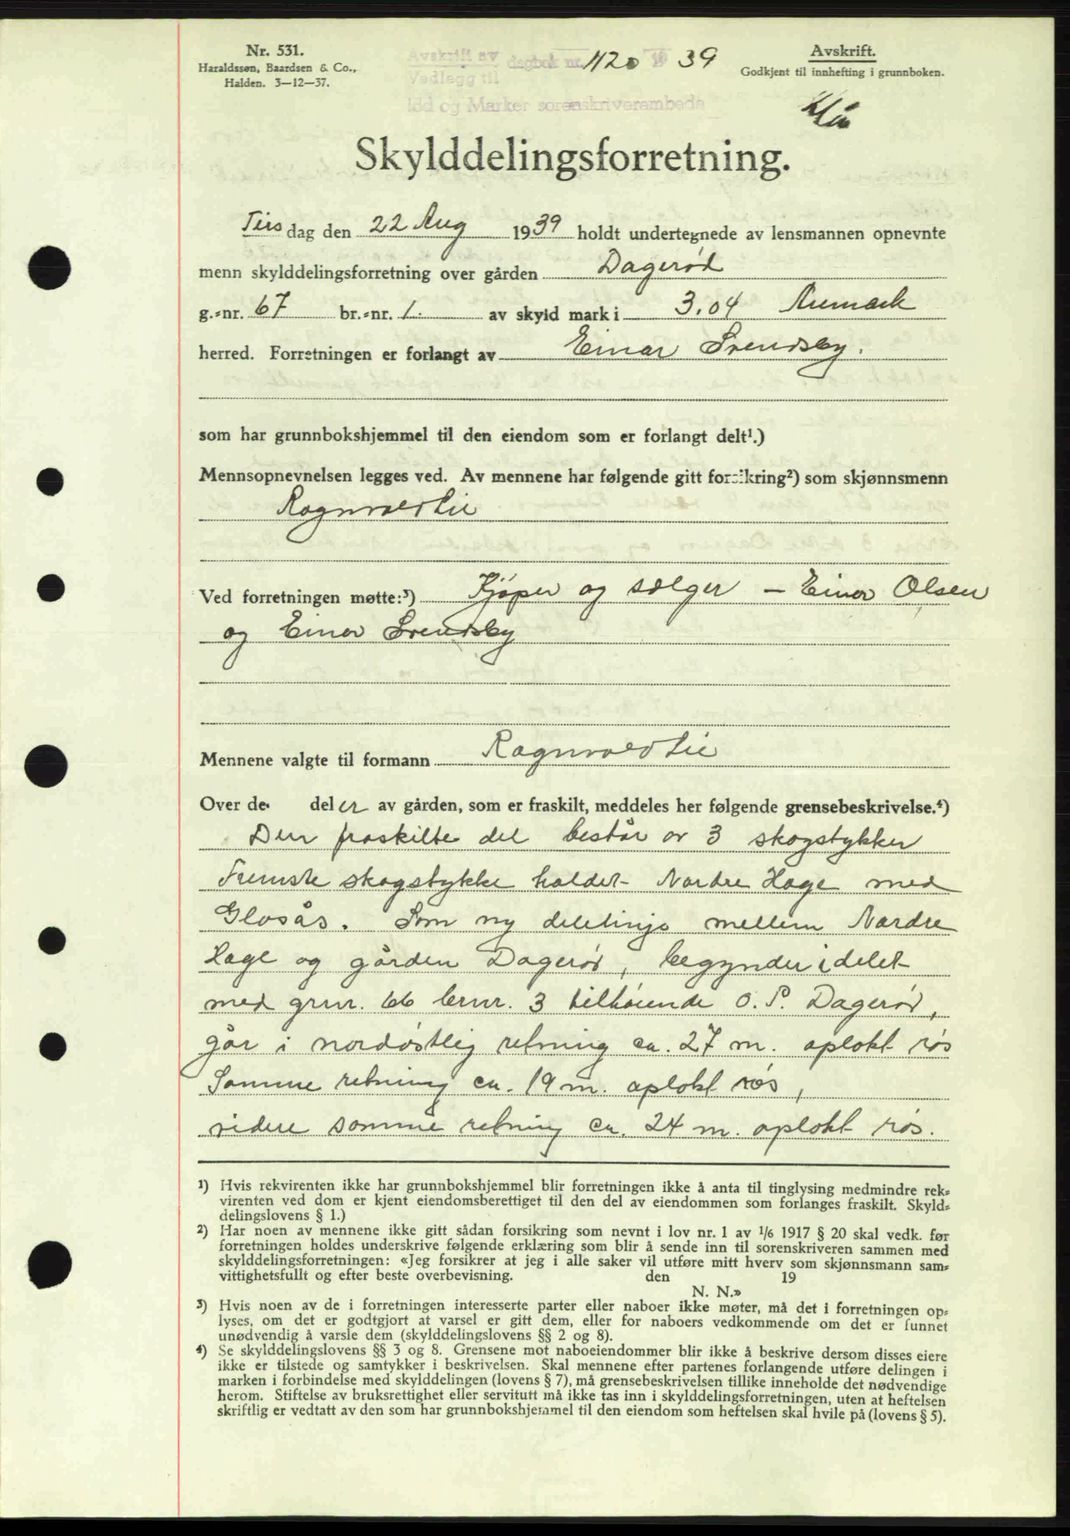 Nr. 531.
Haraldssøn, Baardsen & Co.,
Halden. 3—12—37.
Avskrift av dagbok nr. 1120 19 39
Vedlegg til
Idd og Marker sorenskriverembede
Avskrift.
Godkjent til innhefting i grunnboken.
Skylddelingsforretning.
Tirsdag den 22 Aug 1939 holdt undertegnede av lensmannen opnevnte
menn skylddelingsforretning over gården Dagerød
g.-nr. 67 br.-nr. 1. av skyld mark i 3,04 Aremark
herred. Forretningen er forlangt av Einar Svendsby.
som har grunnbokshjemmel til den eiendom som er forlangt delt¹.)
Mennsopnevnelsen legges ved. Av mennene har følgende gitt forsikring²) som skjønnsmenn
Ragnvald Lie
Ved forretningen møtte:³) Kjøper og selger — Einar Olsen
og Einar Svendsby
Mennene valgte til formann Ragnvald Lie
Over de deler av gården, som er fraskilt, meddeles her følgende grensebeskrivelse.⁴)
Den fraskilte del består av 3 skogstykker
Fremste skogstykke kaldet Nordre Hage med
Glosås. Som ny delelinje mellem Nordre
Hage og gården Dagerød, begynder i delet
med grnr. 66 brnr. 3 tilhøiende O. P. Dagerød,
går i nordøstlig retning ca. 27 m. oplokt røs
Samme retning ca. 19 m. oplokt røs,
videre samme retning ca. 24 m. oplokt røs.
¹) Hvis rekvirenten ikke har grunnbokshjemmel blir forretningen ikke å anta til tinglysing medmindre rek-
virenten ved dom er kjent eiendomsberettiget til den del av eiendommen som forlanges fraskilt. Skyld-
delingslovens § 1.)
²) Har noen av mennene ikke gitt sådan forsikring som nevnt i lov nr. 1 av 1/6 1917 § 20 skal vedk. før
forretningen holdes underskrive følgende erklæring som blir å sende inn til sorenskriveren sammen med
skylddelingsforretningen: «Jeg forsikrer at jeg i alle saker vil utføre mitt hverv som skjønnsmann sam-
vittighetsfullt og efter beste overbevisning. den 19
N. N.»
³) Hvis noen av de i forretningen interesserte parter eller naboer ikke møter, må det i forretningen op-
lyses, om det er godtgjort at varsel er gitt dem, eller for naboers vedkommende om det er funnet
unødvendig å varsle dem (skylddelingslovens §§ 2 og 8).
⁴) Se skylddelingslovens §§ 3 og 8. Grensene mot naboeiendommer blir ikke å beskrive dersom disses eiere
ikke er tilstede og samtykker i beskrivelsen. Skal mennene efter partenes forlangende utføre delingen i
marken i forbindelse med skylddelingen (lovens § 7), må grensebeskrivelsen tillike inneholde det nødvendige
herom. Stiftelse av bruksrettighet eller servitutt må ikke tas inn i skylddelingsforretningen, uten at heftelsen
skriftlig er vedtatt av den som har grunnbokshjemmel til den eiendom som heftelsen skal hvile på (lovens § 5).